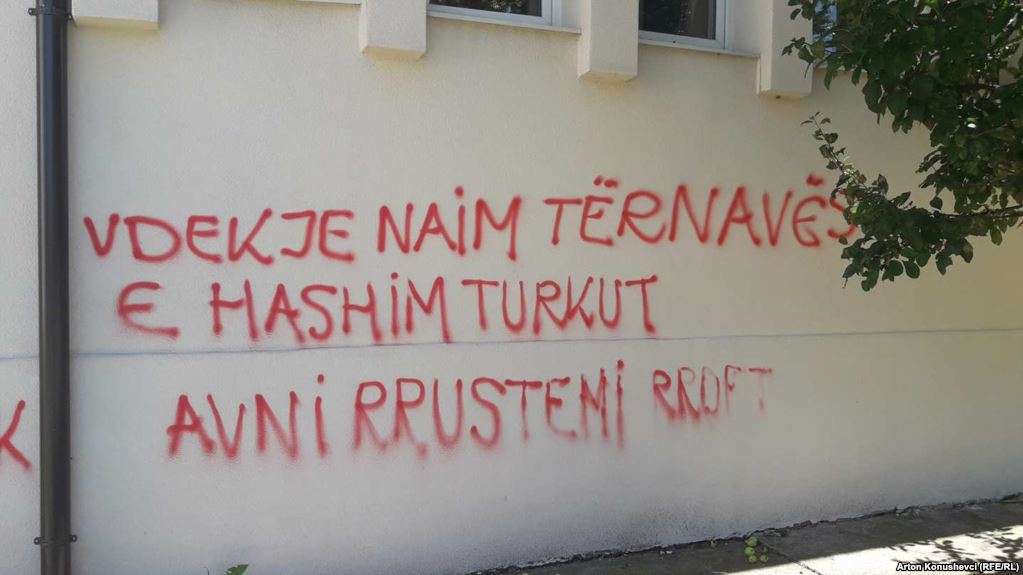 VDEKJE NAİM TËRNAVËS
E HASHİM TURKUT
AVNİ RRUSTEMİ RROFT
K
Arton Konushevci (RFE/RL)